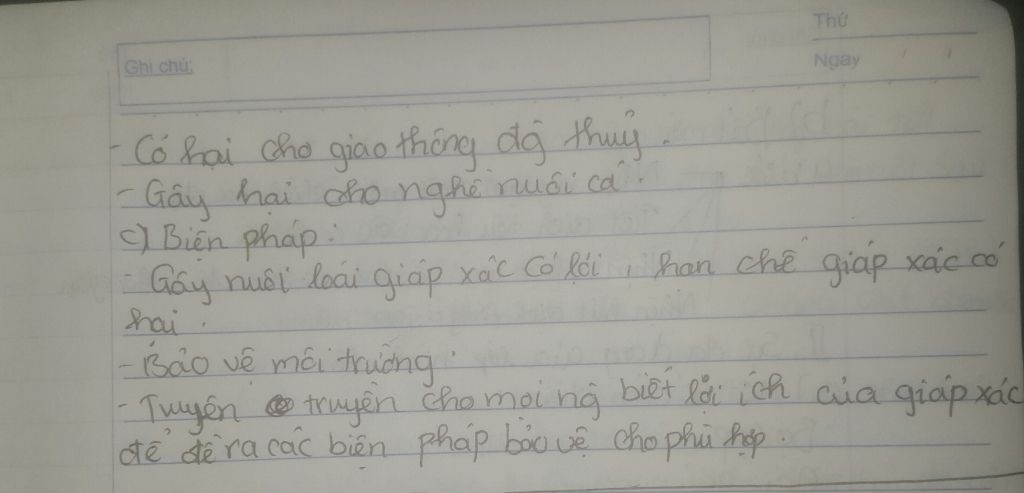 Thứ
Ghi chú:
Ngày
- Có hại cho giao thông đg thuỷ.
- Gây hại cho nghề nuôi cá.
c) Biện pháp:
- Gây nuôi loài giáp xác có lợi, hạn chế giáp xác có
hại.
- Bảo vệ môi trường.
- Tuyên truyền cho mọi ng biết lợi ích của giáp xác
để đề ra các biện pháp bảo vệ cho phù hợp.